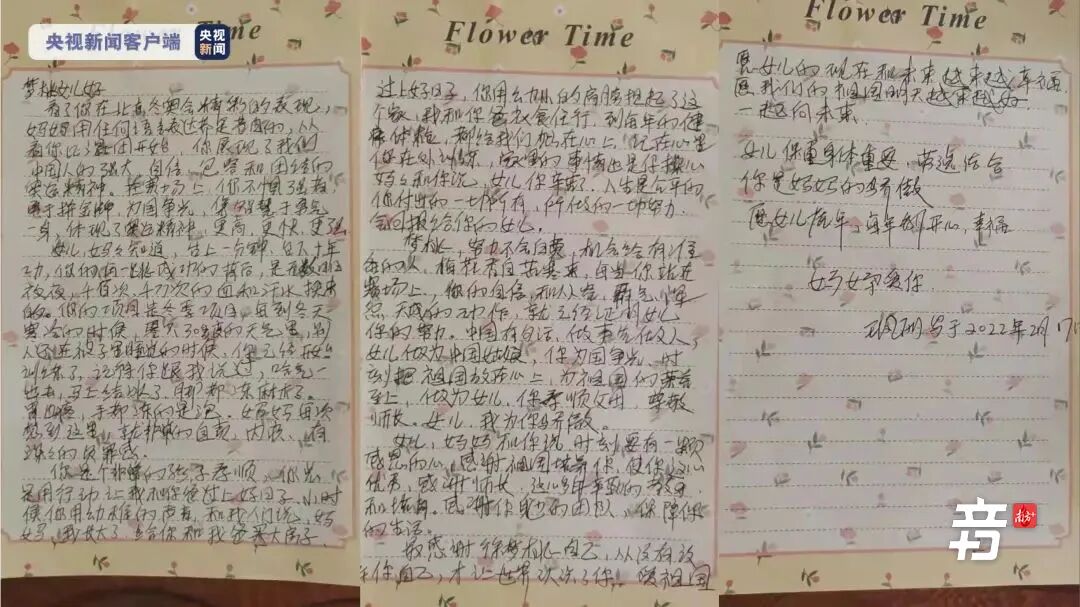 央视新闻客户端
央视新闻
Flower Time
梦桃女儿好
看了你在北京冬奥会精彩的表现,
妈妈用任何语言表达都是苍白的,从
看你口 开始,你展现了我们
中国人的强大、自信、包容和团结的
奥运精神。在赛场上,你不惧强敌
勇于拼金牌,为国争光,集智慧于勇气
一身,体现了奥运精神,更高、更快、更强
女儿,妈妈知道,台上一分钟,台下十年
功,你的每一跳成功的背后,是无数个日日
夜夜,千百次、千万次的血和汗水换来
的。你的项目是冬季项目,每到冬天
寒冷的时候,零下30度的天气里,别
人还在被子里睡觉的时候,你已经开始
训练了,记得你跟我说过,哈气一
出去,马上结冰了,脚都冻麻木了。
冒血,手都冻的是泡。妈妈每次
想到这里,就非常的自责,内疚、有
深深的负罪感。
你是个非常的孩子孝顺,你总
是用行动让我和你爸过上好日子,小时
候你用幼稚的声音和我们说,妈
妈,我长大了,给你和我爸买大房子
Flower Time
过上好日子,你用幼小的肩膀担起了这
个家,我和你爸衣食住行,到每年的健
康体检,都给我们放在心上,现在心里
你在外训练,家里的事情也是你操心
妈妈和你说,女儿你辛苦了,人生是公平的
你付出的一切所有,所做的一切努力
会回报给你的女儿。
梦桃,努力不会白费,机会给有准
备的人,梅花香自苦寒来,自当你站在
赛场上,你的自信和从容,霸气、浑
然天成的动作,就已经证明女儿
你的努力。中国有句话,做事先做人
女儿做为中国姑娘,你为国争光,时
刻把祖国放在心上,为祖国的荣誉
至上,做为女儿,你孝顺父母,尊敬
师长。女儿,我为你骄傲。
女儿,妈妈和你说,时刻要有一颗
感恩的心,感谢祖国培养你,使你这么
优秀,感谢师长,这么多年辛勤的教导
和培育。感谢你身边的团队,保障你
的生活。
最感谢徐梦桃自己,从没有放
弃你自己,才让世界认识了你。愿祖国
Flower Time
愿女儿的现在和未来越来越幸福
愿我们的祖国明天越来越好
一起向未来
女儿保重身体重要,劳逸结合
你是妈妈的骄傲
愿女儿虎年,每年都开心,幸福
妈妈爱你
写于2022年2月17日
音书
南方+